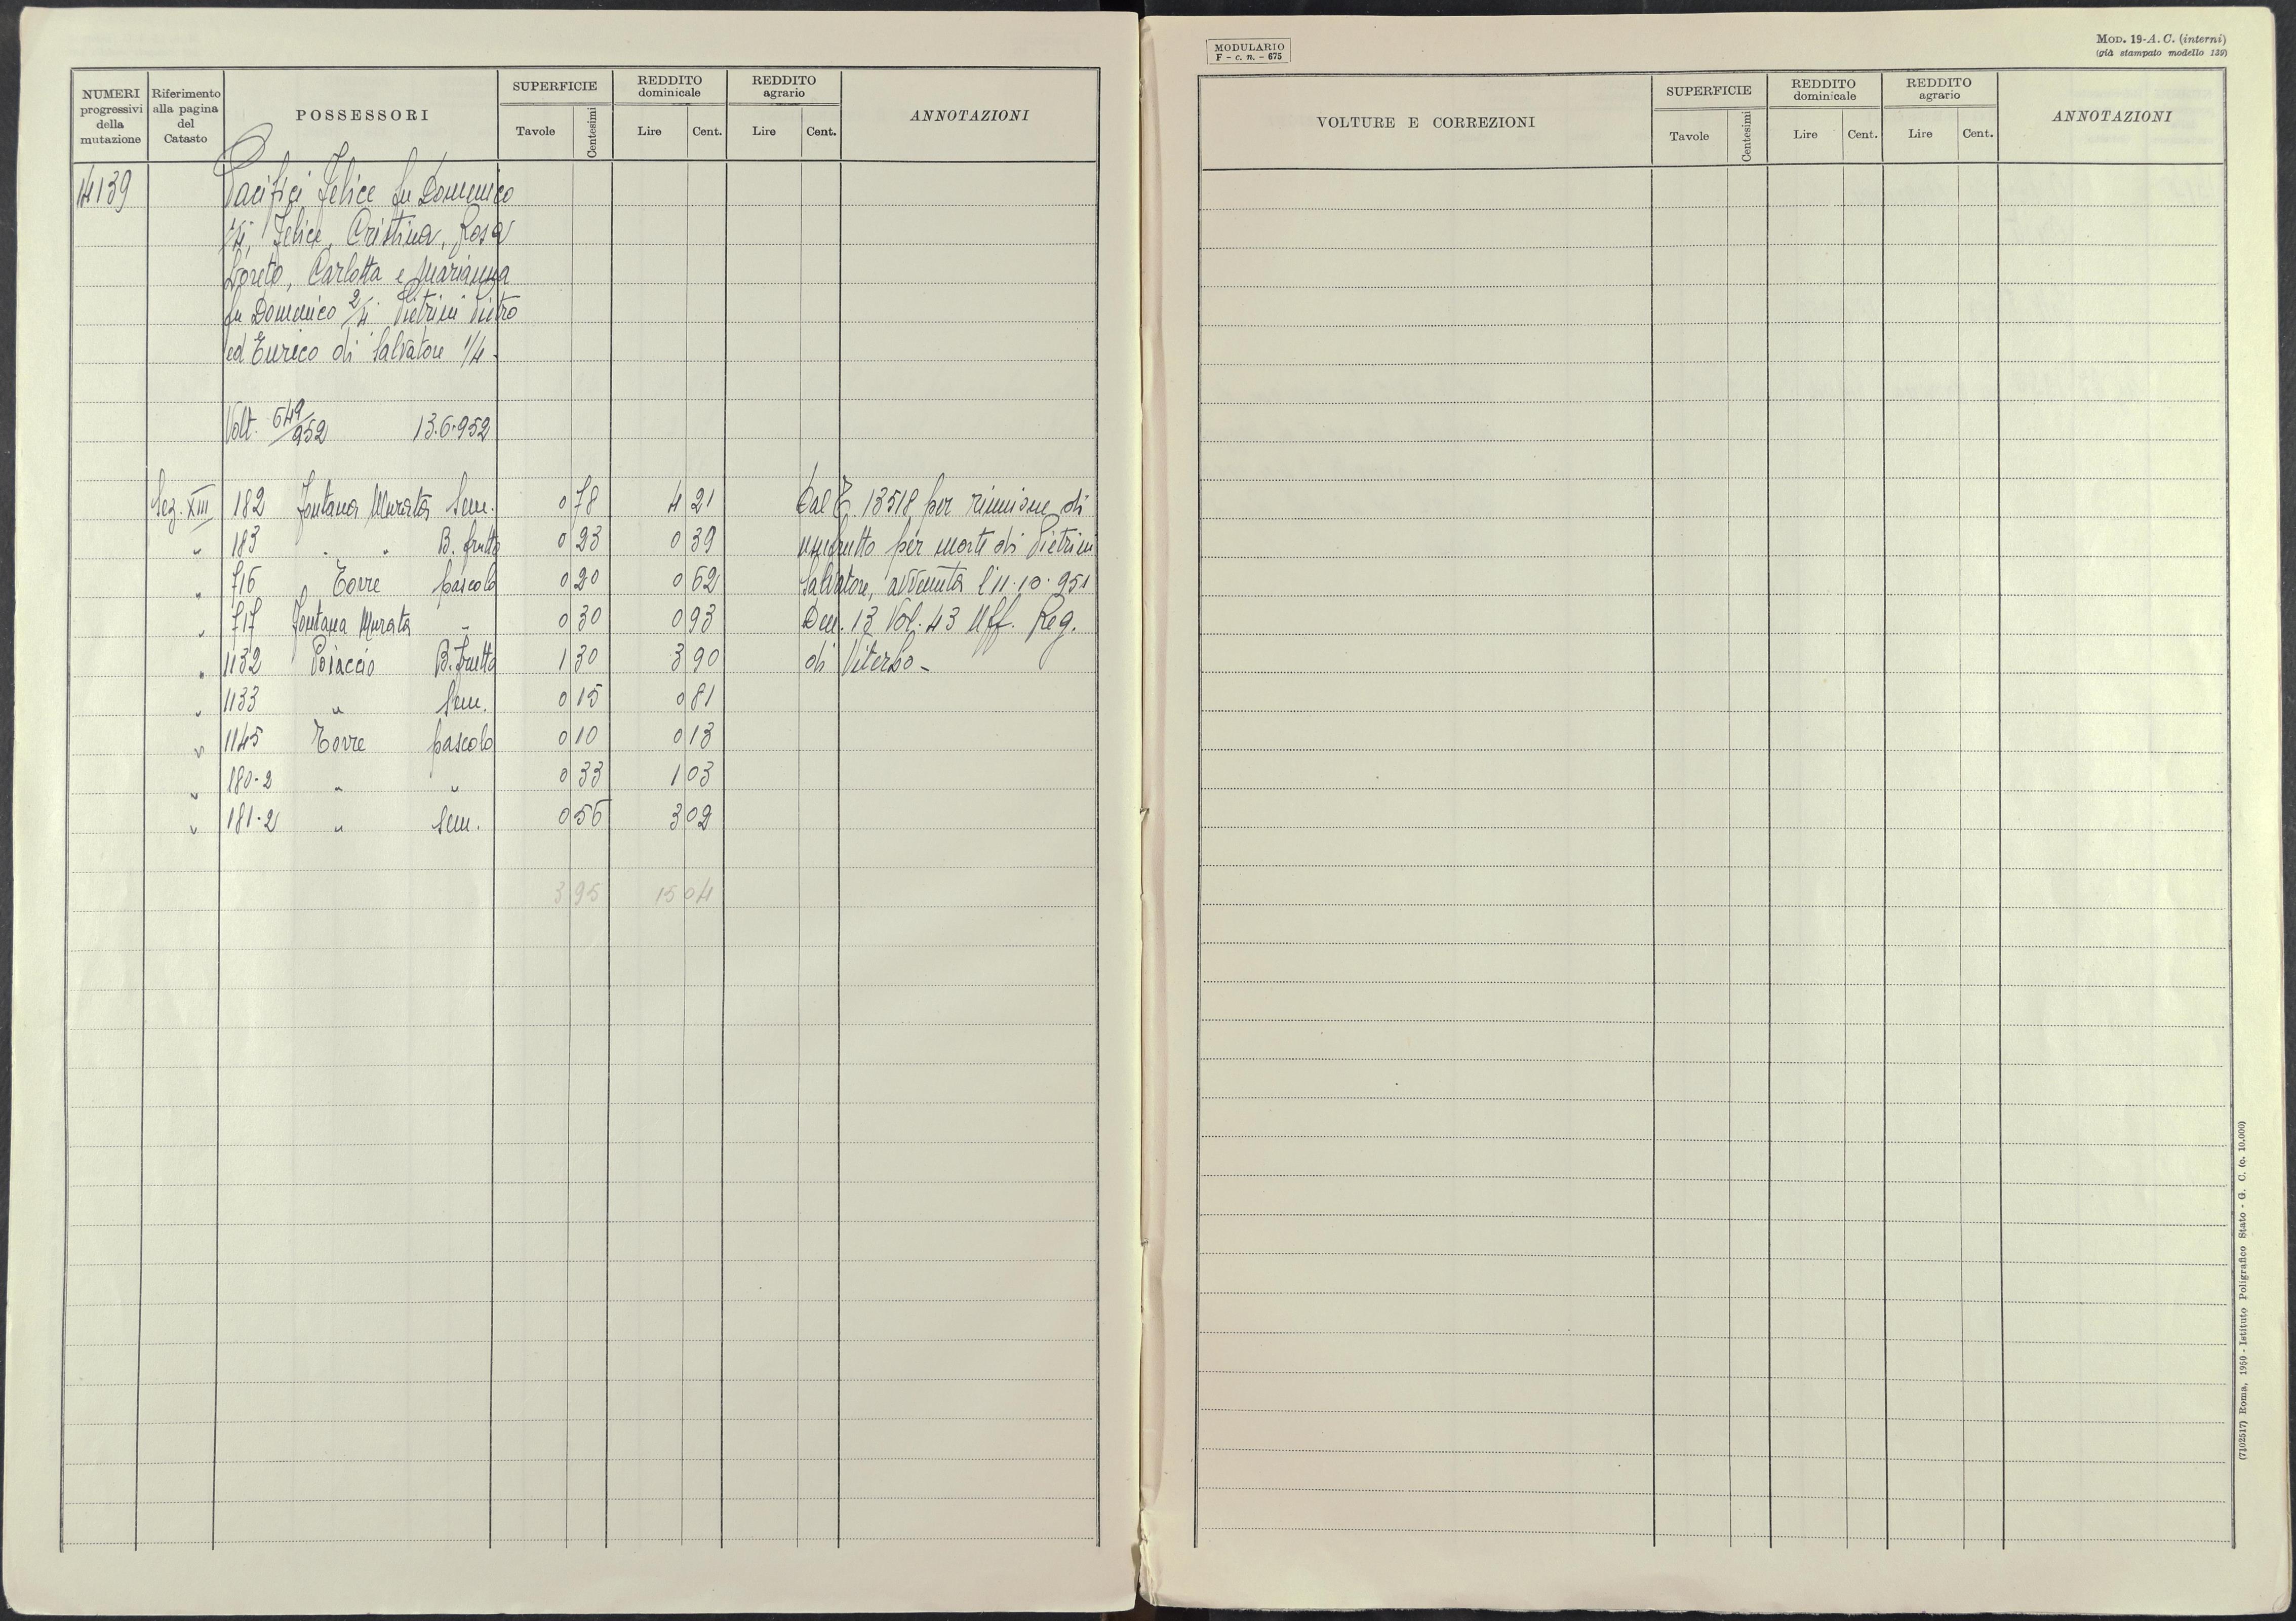 NUMERI progressivi della mutazione | Riferimento alla pagina del Catasto | POSSESSORI | SUPERFICIE Tavole Centesimi | REDDITO dominicale Lire Cent. | REDDITO agrario Lire Cent. | ANNOTAZIONI
14139 Pacifici Felice fu Domenico
1/4, Felice, Cristina, Rosa
Loreto, Carlotta e Marianna
fu Domenico 2/4 Pietrini Pietro
ed Enrico di Salvatore 1/4 -
Volt. 649/952 13.6.952
Sez. XIII 182 Fontana Murata Sem. 0 78 4 21 Dal E. 13518 per riunione di
" 183 " " B. frutto 0 23 0 39 usufrutto per morte di Pietrini
" 716 Torre pascolo 0 20 0 62 Salvatore, avvenuta l'11.10.951
" 717 Fontana Murata " 0 30 0 93 Den. 13 Vol. 43 Uff. Reg.
" 1132 Poiaccio B. frutto 1 30 3 90 di Viterbo -
" 1133 " Sem. 0 15 0 81
" 1145 Torre pascolo 0 10 0 13
" 180-2 " " 0 33 1 03
" 181-2 " Sem. 0 56 3 02
3 95 15 04
MODULARIO
F - c. n. - 675
MOD. 19-A. C. (interni)
(già stampato modello 139)
VOLTURE E CORREZIONI | SUPERFICIE Tavole Centesimi | REDDITO dominicale Lire Cent. | REDDITO agrario Lire Cent. | ANNOTAZIONI
(7102517) Roma, 1950 - Istituto Poligrafico Stato - G. C. (c. 10.000)